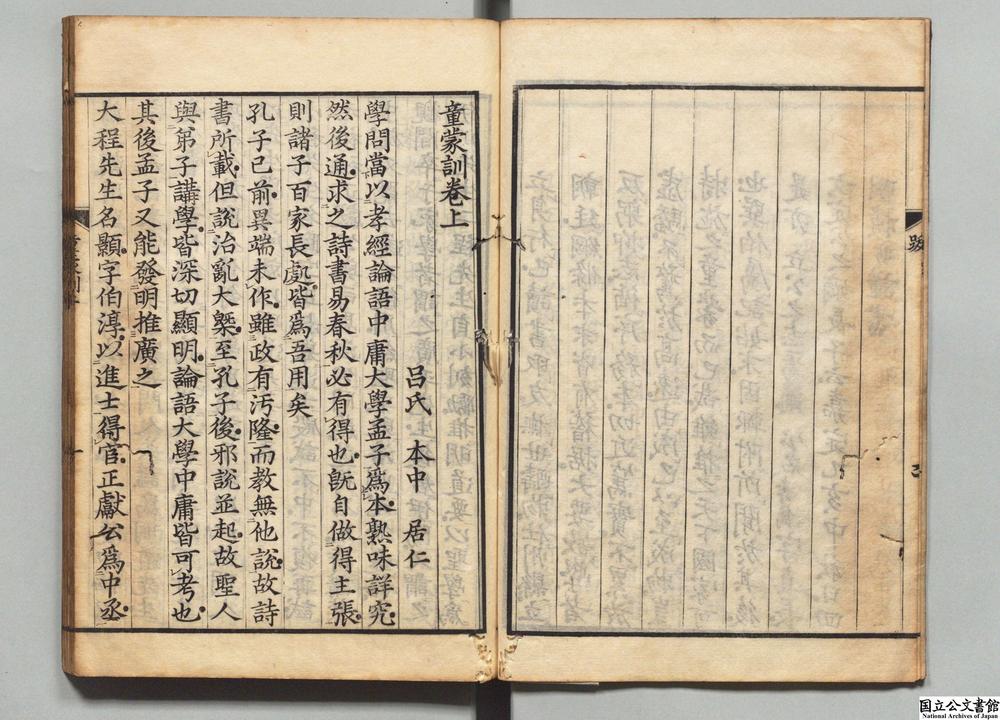 跋
童蒙訓卷上
呂氏 本中 居仁
學問當以孝經論語中庸大學孟子爲本熟味詳究
然後通求之詩書易春秋必有得也旣自做得主張
則諸子百家長處皆爲吾用矣
孔子已前異端未作雖政有汚隆而教無他說故詩
書所載但說治亂大槩至孔子後邪說並起故聖人
與弟子講學皆深切顯明論語大學中庸皆可考也
其後孟子又能發明推廣之
大程先生名顥字伯淳以進士得官正獻公爲中丞
国立公文書館
National Archives of Japan